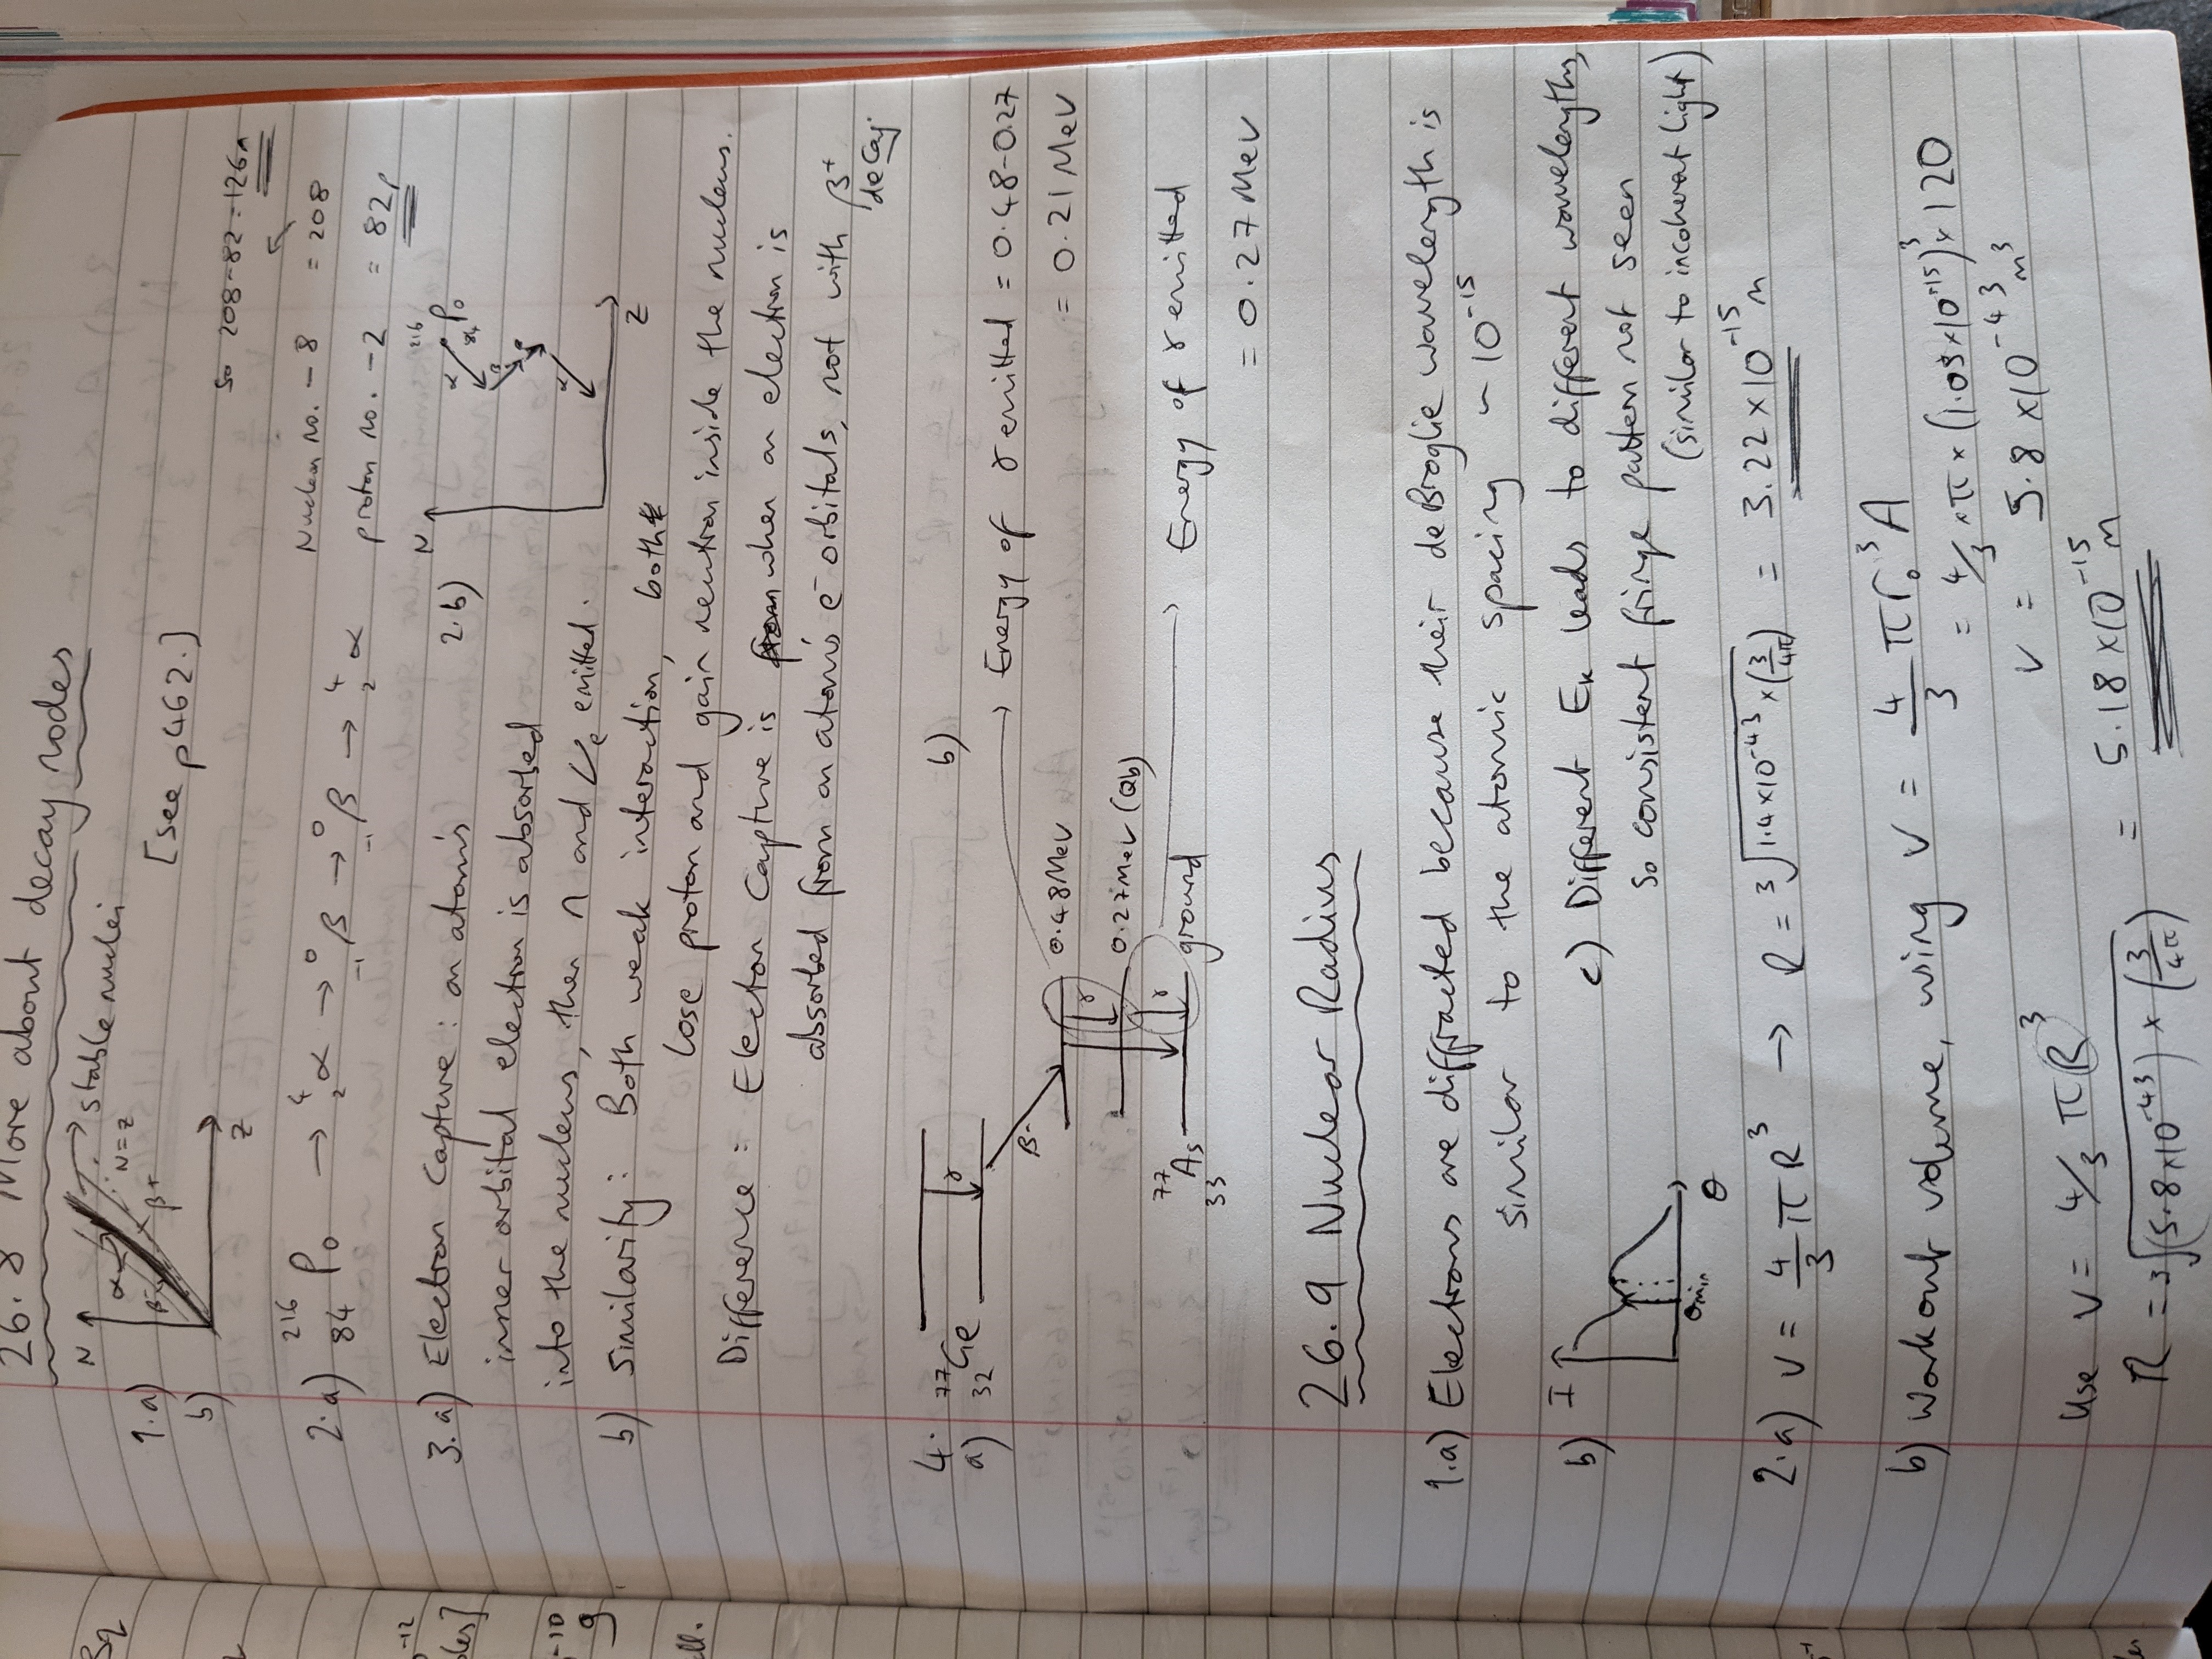 26.8 More about decay modes
1.a) N → stable nuclei
α
β-
N=Z
b) β+
Z
[see p462.]
So 208-82=126n
2.a) ²¹⁶₈₄Po → ⁴₂α → ⁰₋₁β → ⁰₋₁β → ⁴₂α
Nucleon no. -8 = 208
proton no. -2 = 82p
2.b) N
²¹⁶₈₄Po
α
β
α
Z
3.a) Electron Capture: an atom's
inner orbital electron is absorbed
into the nucleus, then n and νe emitted.
b) Similarity: Both weak interaction, both
lose proton and gain neutron inside the nucleus.
Difference: Electron Capture is when an electron is
absorbed from an atom's e⁻ orbitals, not with β⁺
decay.
4.
a) ⁷⁷₃₂Ge
γ
β⁻
0.48MeV
γ
0.27MeV (Qb)
γ
⁷⁷₃₃As
ground
b)
→ Energy of γ emitted = 0.48-0.27
= 0.21 MeV
→ Energy of γ emitted
= 0.27 MeV
26.9 Nuclear Radius
1.a) Electrons are diffracted because their de Broglie wavelength is
similar to the atomic spacing ~ 10⁻¹⁵
b) I
θmin
θ
c) Different Eₖ leads to different wavelengths,
so consistent fringe pattern not seen
(similar to incoherent light)
2.a) V = 4/3 πR³ → R = ³√1.4×10⁻⁴³ × (3/4π) = 3.22×10⁻¹⁵ m
b) Work out volume, using V = 4/3 πr₀³A
= 4/3 × π × (1.05×10⁻¹⁵)³ × 120
V = 5.8 ×10⁻⁴³ m³
Use V = 4/3 πR³
R = ³√(5.8×10⁻⁴³) × (3/4π) = 5.18×10⁻¹⁵ m
Bq
-12
-10
g
all.